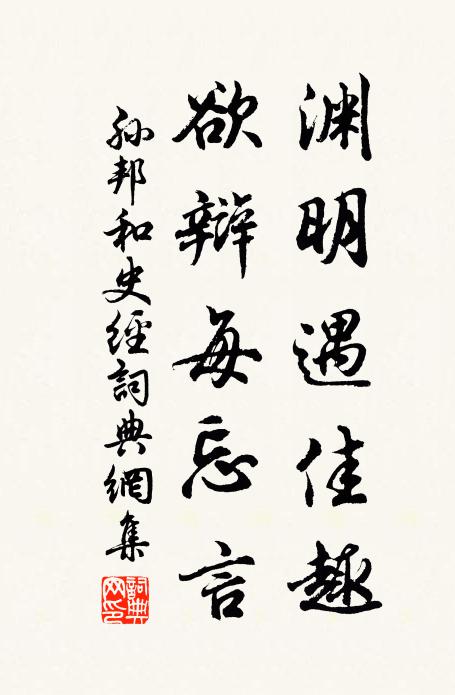 渊明遇佳趣
欲辩每忘言
孙邦和史經詞典網集
詞典網印